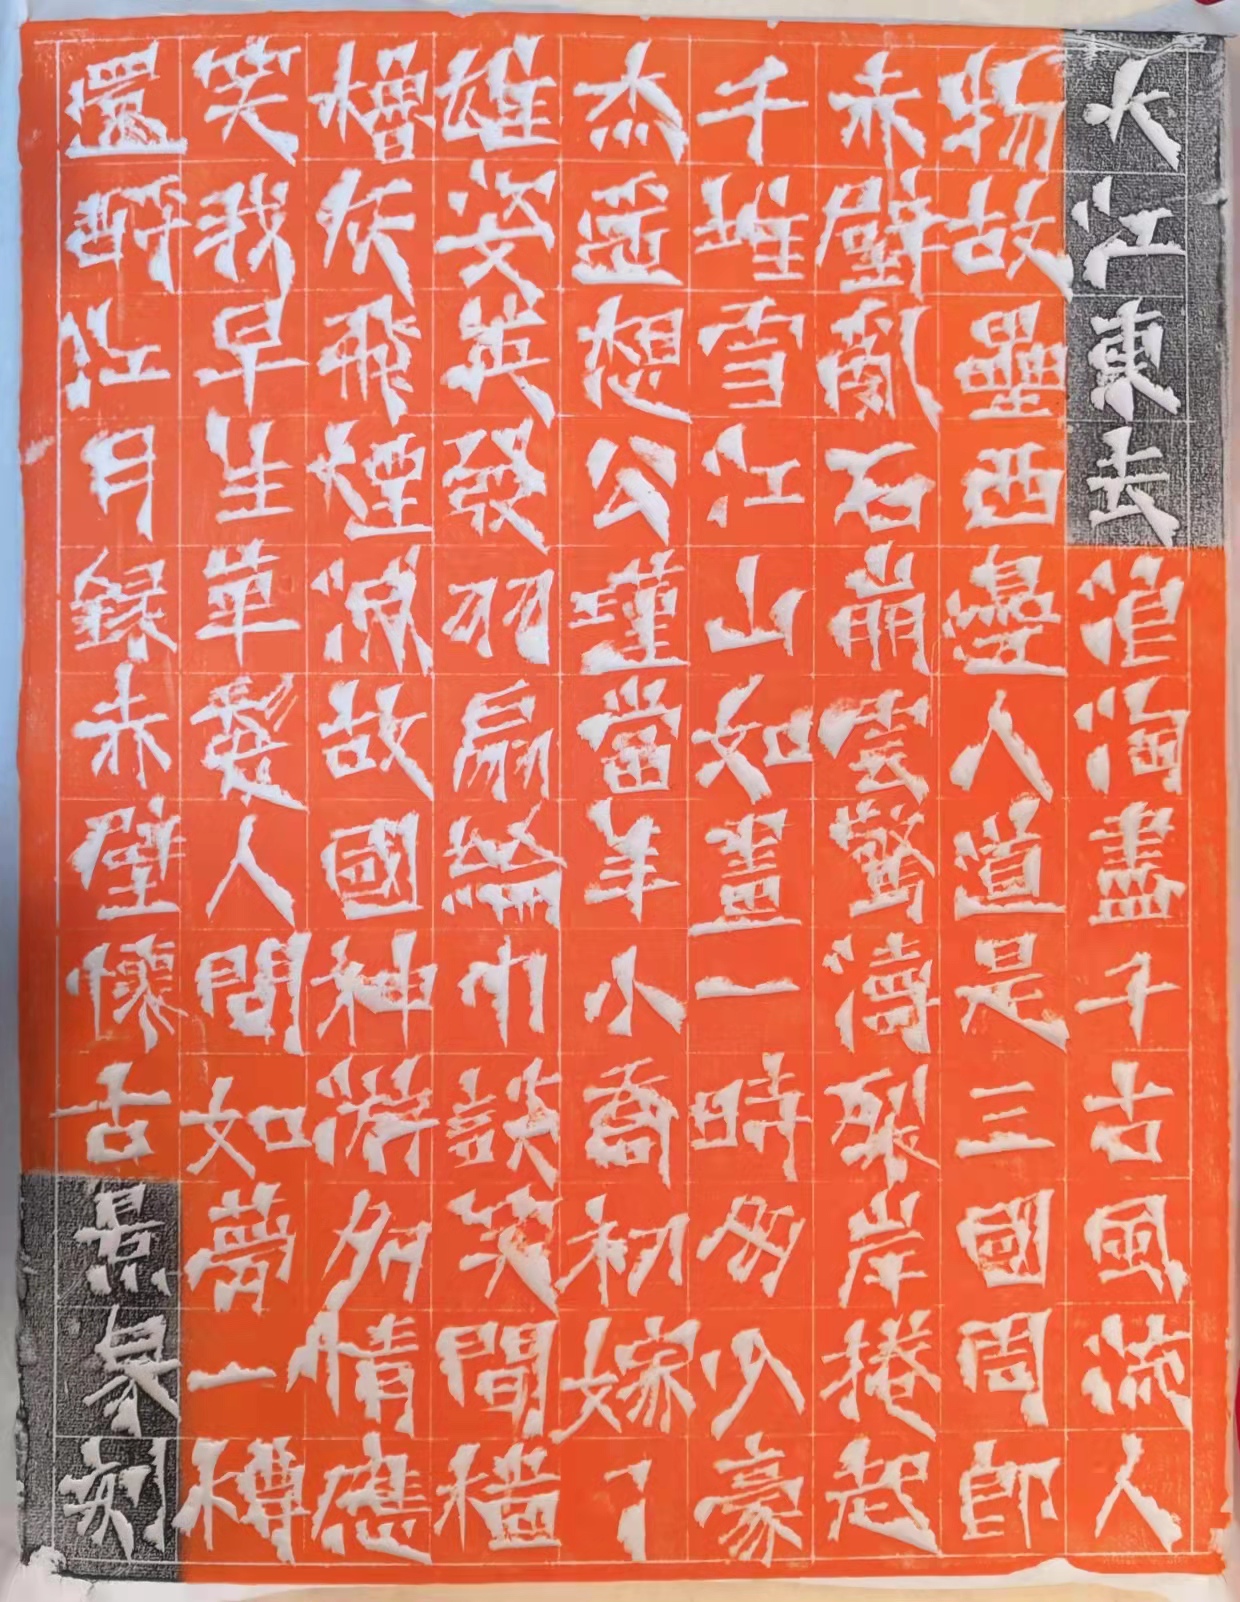 大江東去浪淘盡千古風流人
物故壘西邊人道是三國周郎
赤壁亂石崩雲驚濤裂岸捲起
千堆雪江山如畫一時多少豪
杰遥想公瑾當年小喬初嫁了
雄姿英發羽扇綸巾談笑間檣
櫓灰飛煙滅故國神游多情應
笑我早生華髮人間如夢一樽
還酹江月録赤壁懷古泉刻